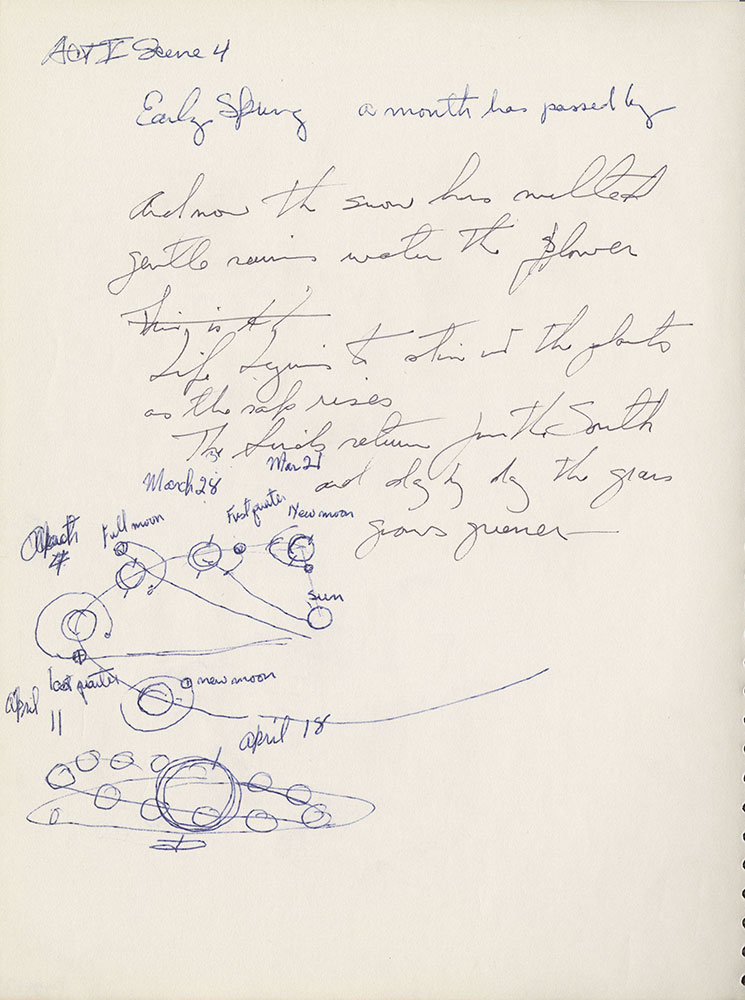 Act I Scene 4
Early Spring a month has passed by
And now the snow has melted
gentle rains water the flower
This is
Life begins to stir in the plants
as the sap rises
The birds return from the South
and day by day the grass
grows greener—
Mar 21
March 28
First quarter
New moon
Full moon
April
4
sun
last quarter
April
11
new moon
April 18